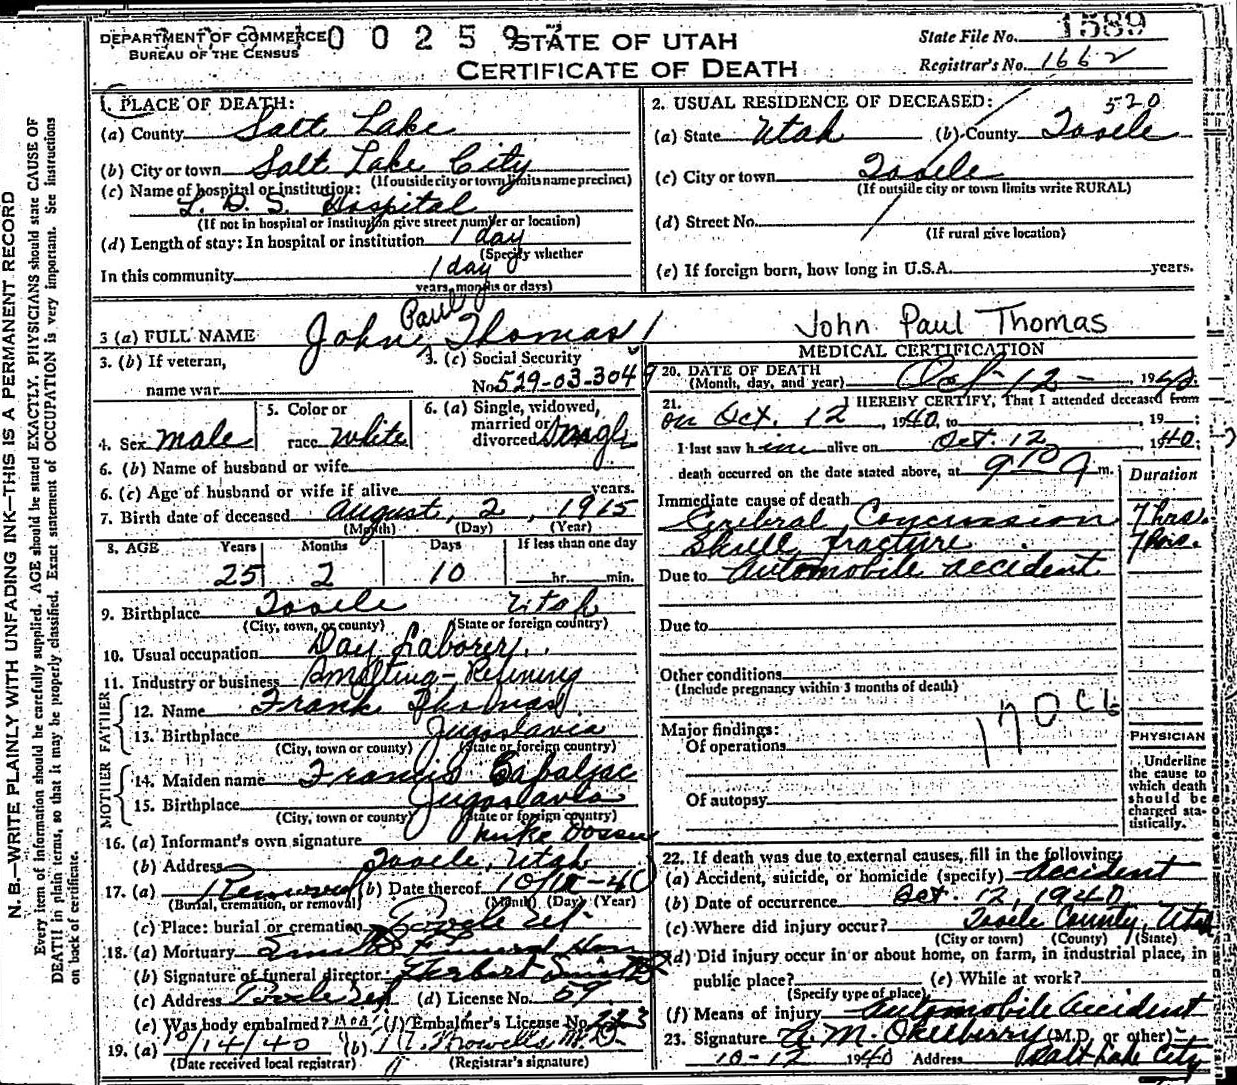 N. B.—WRITE PLAINLY WITH UNFADING INK—THIS IS A PERMANENT RECORD
Every item of information should be carefully supplied. AGE should be stated EXACTLY. PHYSICIANS should state CAUSE OF
DEATH in plain terms, so that it may be properly classified. Exact statement of OCCUPATION is very important. See instructions
on back of certificate.
DEPARTMENT OF COMMERCE
BUREAU OF THE CENSUS
STATE OF UTAH
CERTIFICATE OF DEATH
State File No. 1589
Registrar's No. 1662
1. PLACE OF DEATH:
(a) County Salt Lake
(b) City or town Salt Lake City
(If outside city or town limits name precinct)
(c) Name of hospital or institution:
L. D. S. Hospital
(If not in hospital or institution give street number or location)
(d) Length of stay: In hospital or institution 1 day
(Specify whether
In this community 1 day
years, months or days)
2. USUAL RESIDENCE OF DECEASED: 520
(a) State Utah (b) County Tooele
(c) City or town Tooele
(If outside city or town limits write RURAL)
(d) Street No.
(If rural give location)
(e) If foreign born, how long in U.S.A. years.
3 (a) FULL NAME John Paul Thomas
John Paul Thomas
3. (b) If veteran,
name war
3. (c) Social Security
No. 529-03-3049
4. Sex male
5. Color or
race White
6. (a) Single, widowed,
married or
divorced Single
6. (b) Name of husband or wife
6. (c) Age of husband or wife if alive years.
7. Birth date of deceased August, 2, 1915
(Month) (Day) (Year)
8. AGE Years Months Days If less than one day
25 2 10 hr. min.
9. Birthplace Tooele Utah
(City, town, or county) State or foreign country)
10. Usual occupation Day Laborer
11. Industry or business Smelting-Refining
FATHER
12. Name Frank Thomas
13. Birthplace Jugoslavia
(City, town or county) (State or foreign country)
MOTHER
14. Maiden name Francis
15. Birthplace Jugoslavia
(City, town or county) (State or foreign country)
16. (a) Informant's own signature Mike
(b) Address Tooele, Utah
17. (a) Removal (b) Date thereof
(Burial, cremation, or removal) (Month) (Day) (Year)
(c) Place: burial or cremation Tooele Ut.
18. (a) Mortuary
(b) Signature of funeral director Herbert Smith
(c) Address Tooele Ut. (d) License No. 59
(e) Was body embalmed? (f) Embalmer's License No. 223
19. (a) 10/14/40 (b) M.D.
(Date received local registrar) (Registrar's signature)
MEDICAL CERTIFICATION
20. DATE OF DEATH
(Month, day, and year) Oct- 12 - , 1940.
21. I HEREBY CERTIFY, That I attended deceased from
on Oct. 12, 1940, to , 19 :
I last saw him alive on Oct. 12 1940:
death occurred on the date stated above, at 9 10 m.
Duration
Immediate cause of death
Cerebral Concussion 7 hrs.
Skull fracture 7 hrs.
Due to Automobile accident
Due to
Other conditions
(Include pregnancy within 3 months of death)
170
Major findings:
Of operations
Of autopsy
PHYSICIAN
Underline
the cause to
which death
should be
charged sta-
tistically.
22. If death was due to external causes, fill in the following:
(a) Accident, suicide, or homicide (specify) Accident
(b) Date of occurrence Oct. 12, 1940
(c) Where did injury occur? Tooele County, Utah
(City or town) (County) (State)
(d) Did injury occur in or about home, on farm, in industrial place, in
public place? (e) While at work?
(Specify type of place)
(f) Means of injury Automobile Accident
23. Signature A. M. Okelberry (M.D. or other)
10-12 1940 Address Salt Lake City